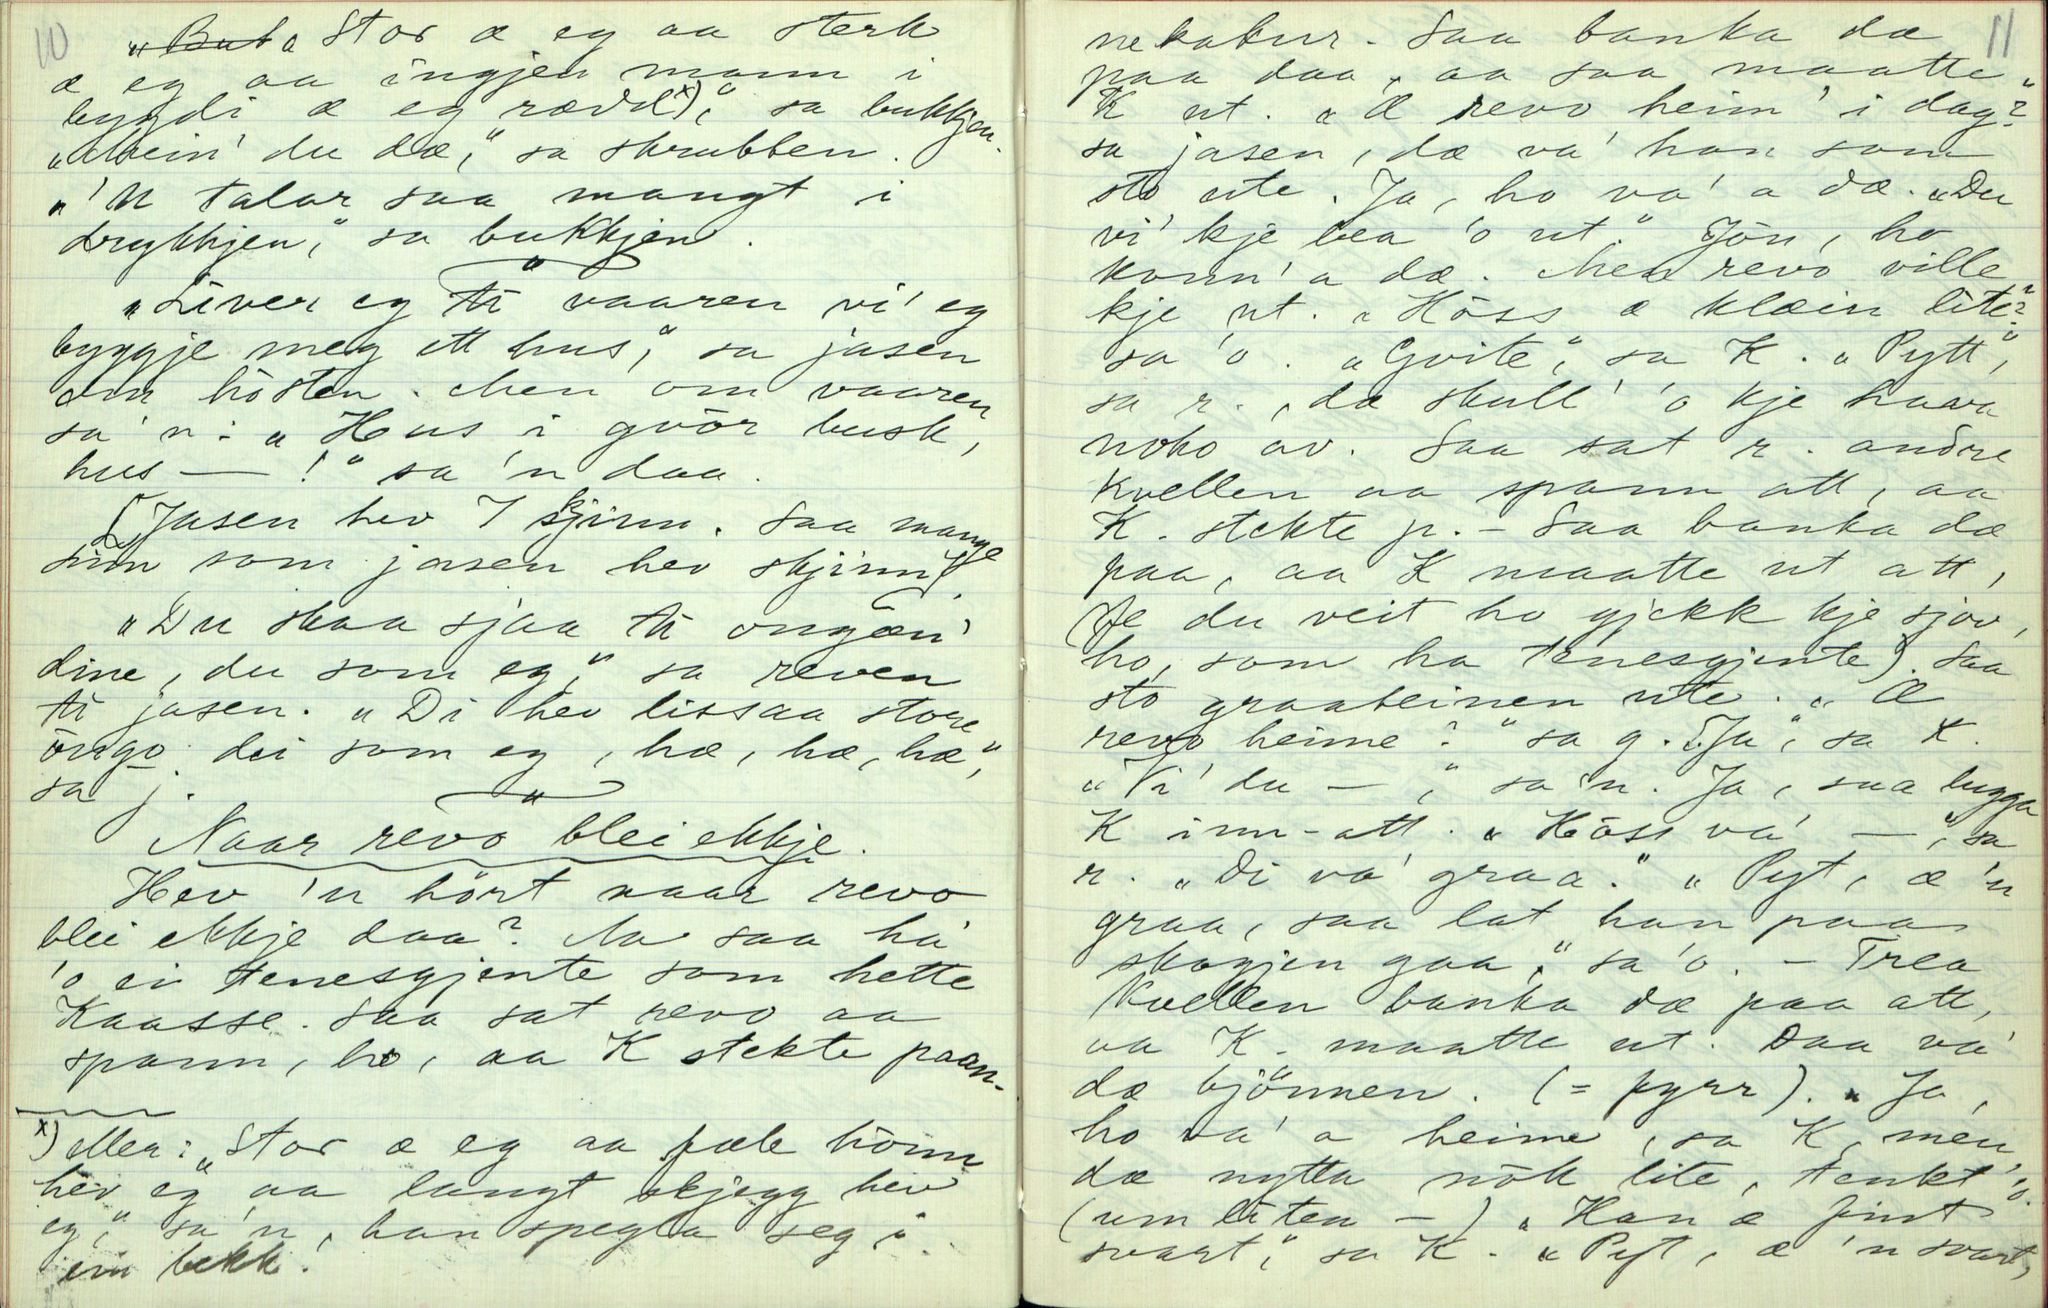 10
"~~Buk~~ Stor æ eg aa sterk
æ eg aa ingjen mann i
bygdi æ eg rædd x)," sa bukkjen.
"Mein' du dæ," sa skrubben.
"'N talar saa mangt i
drykkjen," sa bukkjen.
"Liver eg ti vaaren vi' eg
byggje meg ett hus," sa jasen
om hösten. Men om vaaren
sa 'n: "Hus i gvör busk,
hus — !" sa 'n daa.
[Jasen hev 7 skjinn. Saa mange
sinn som jasen hev skjinn].
"Du skaa sjaa ti ongæn'
dine, du som eg," sa reven
ti jasen. "Di hev lissaa store
öugo dei som eg, hæ, hæ, hæ,"
sa j.
Naar revo blei ekkje.
Hev 'n hört naar revo
blei ekkje daa? Aa saa ha'
'o ei tenesgjente som hette
Kaasse. Saa sat revo aa
spann, ho, aa K stekte paan-
x) eller: "Stor æ eg aa fæle hönn
hev eg aa langt skjegg hev
eg," sa 'n, han spegla seg i
ein bekk.
11
nekakur. Saa banka dæ
paa daa, aa saa maatte
K ut. "Æ revo heim' i dag?"
sa jasen, dæ va' han som
sto ute. Ja, ho va' a dæ. "Du
vi' kje bea 'o ut." Jön, ho
konn' a dæ. Men revo ville
kje ut. "Höss æ klæin lite?"
sa 'o. "Gvite," sa K. "Pytt",
sa r., dæ skull' 'o kje haava
noko av. Saa sat r. andre
kvellen aa spann att, aa
K. stekte p. – Saa banka dæ
paa, aa K maatte ut att,
(fe du veit ho gjekk kje sjøv,
ho, som ha tenesgjente). Saa
sto graabeinen ute. "Æ
revo heime?" sa g. "Ja", sa K.
"Vi' du —," sa 'n. Ja, saa bygga
K inn-att. "Höss va' —," sa
r. "Di va' graa." "Pyt, æ 'n
graa, saa lat han paa
skogjen gaa," sa 'o. – Trea
kvellen banka dæ paa att,
aa K. maatte ut. Daa va'
dæ björnen. (= fyrr). "Ja,
ho va' a heime, sa K, men
dæ nytta nök lite, tenkt' 'o.
(um liten —) "Han æ fint
svart," sa K. "Pyt, æ 'n svart,